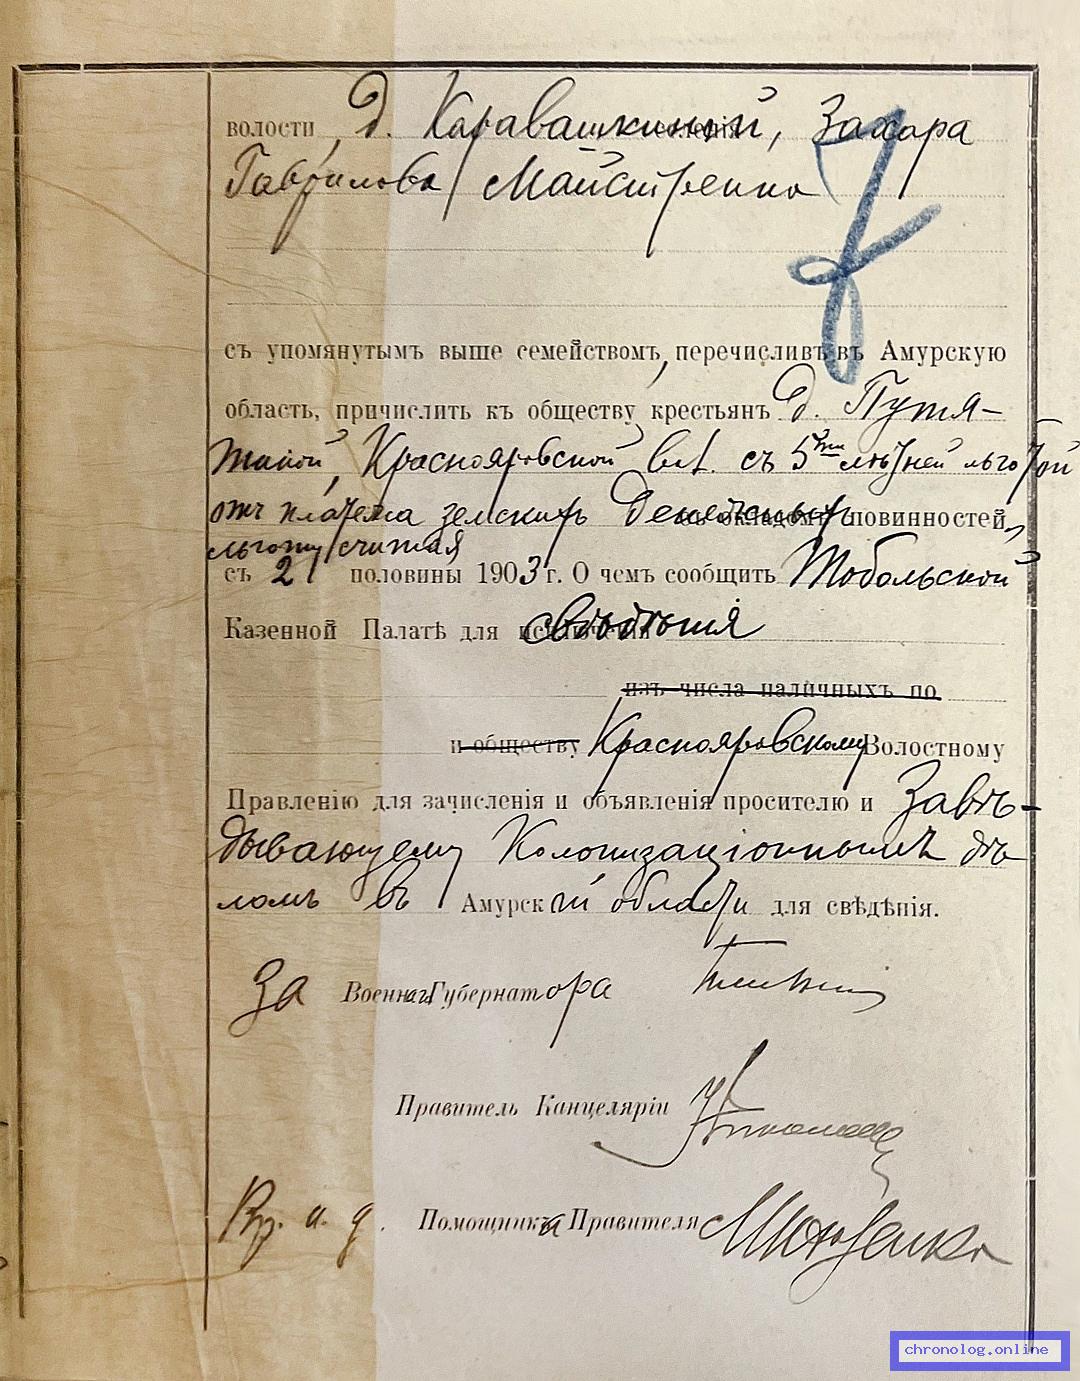 волости, д. Каравашкиной, Захара
Гаврилова Майстренко
съ упомянутымъ выше семействомъ, перечисливъ въ Амурскую
область, причислить къ обществу крестьянъ д. Путя-
тиной, Краснояровской вол. съ 5ти лѣтней льготой
отъ платежа земскихъ денежныхъ повинностей,
льготу считая
съ 2 половины 1903 г. О чемъ сообщить Тобольской
Казенной Палатѣ для свѣдѣнія
изъ числа наличныхъ по
и обществу Краснояровскому Волостному
Правленію для зачисленія и объявленія просителю и Завѣ-
дывающему Колонизаціоннымъ дѣ-
ломъ въ Амурской области для свѣдѣнія.
За Военнаго Губернатора
Правитель Канцеляріи
Вр. и. д. Помощника Правителя
chronolog.online